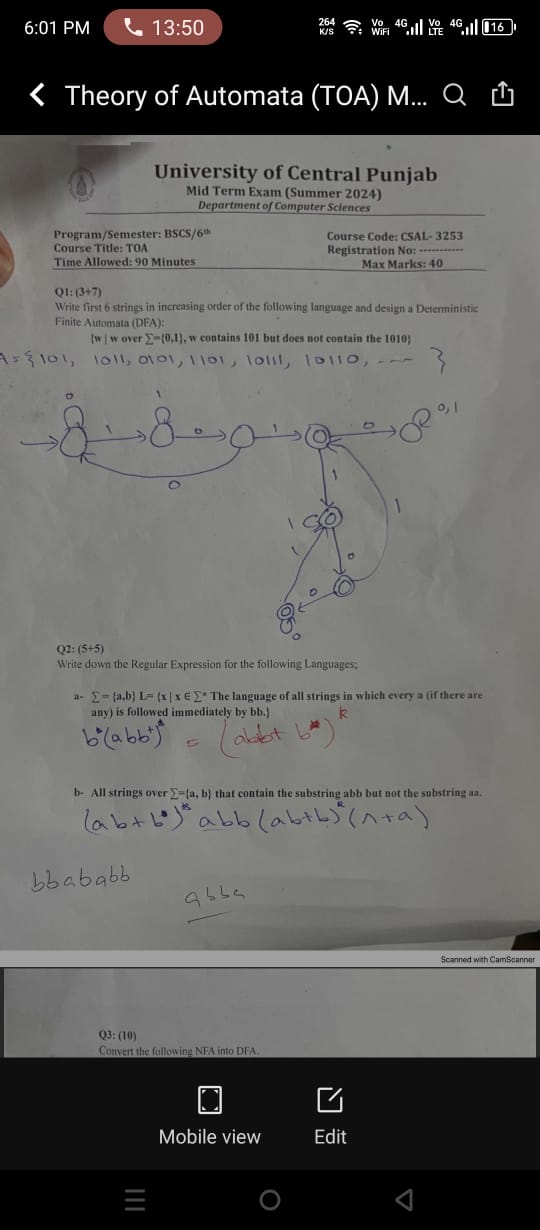 6:01 PM 13:50 264 K/S Vo WiFi 4G Vo LTE 4G 16
Theory of Automata (TOA) M...
University of Central Punjab
Mid Term Exam (Summer 2024)
Department of Computer Sciences
Program/Semester: BSCS/6th
Course Code: CSAL- 3253
Course Title: TOA
Registration No: -----------
Time Allowed: 90 Minutes
Max Marks: 40
Q1: (3+7)
Write first 6 strings in increasing order of the following language and design a Deterministic
Finite Automata (DFA):
{w | w over ∑={0,1}, w contains 101 but does not contain the 1010}
A = { 101, 1011, 0101, 1101, 10111, 10110, --- }
0 1 0,1
1 0 1 0
0
1
1 1
1 0
0
0
Q2: (5+5)
Write down the Regular Expression for the following Languages;
a- ∑ = {a,b} L= {x | x ∈ ∑* The language of all strings in which every a (if there are
any) is followed immediately by bb.}
b*(abb+)* = (abb+ b*)*
b- All strings over ∑={a, b} that contain the substring abb but not the substring aa.
(ab+b*)* abb (ab+b)* (^+a)
bbababb
abba
Scanned with CamScanner
Q3: (10)
Convert the following NFA into DFA.
Mobile view Edit